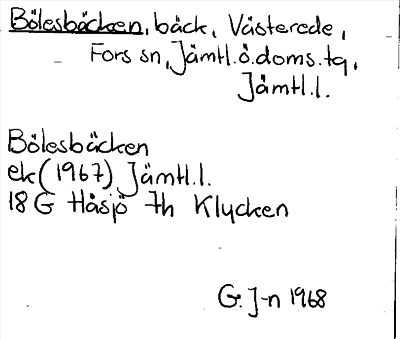 Bölesbäcken, bäck, Västerede,
Fors sn, Jämtl.ö.doms.tg,
Jämtl.l.
Bölesbäcken
ek (1967) Jämtl.l.
18 G Håsjö 7h Klycken
G. J-n 1968